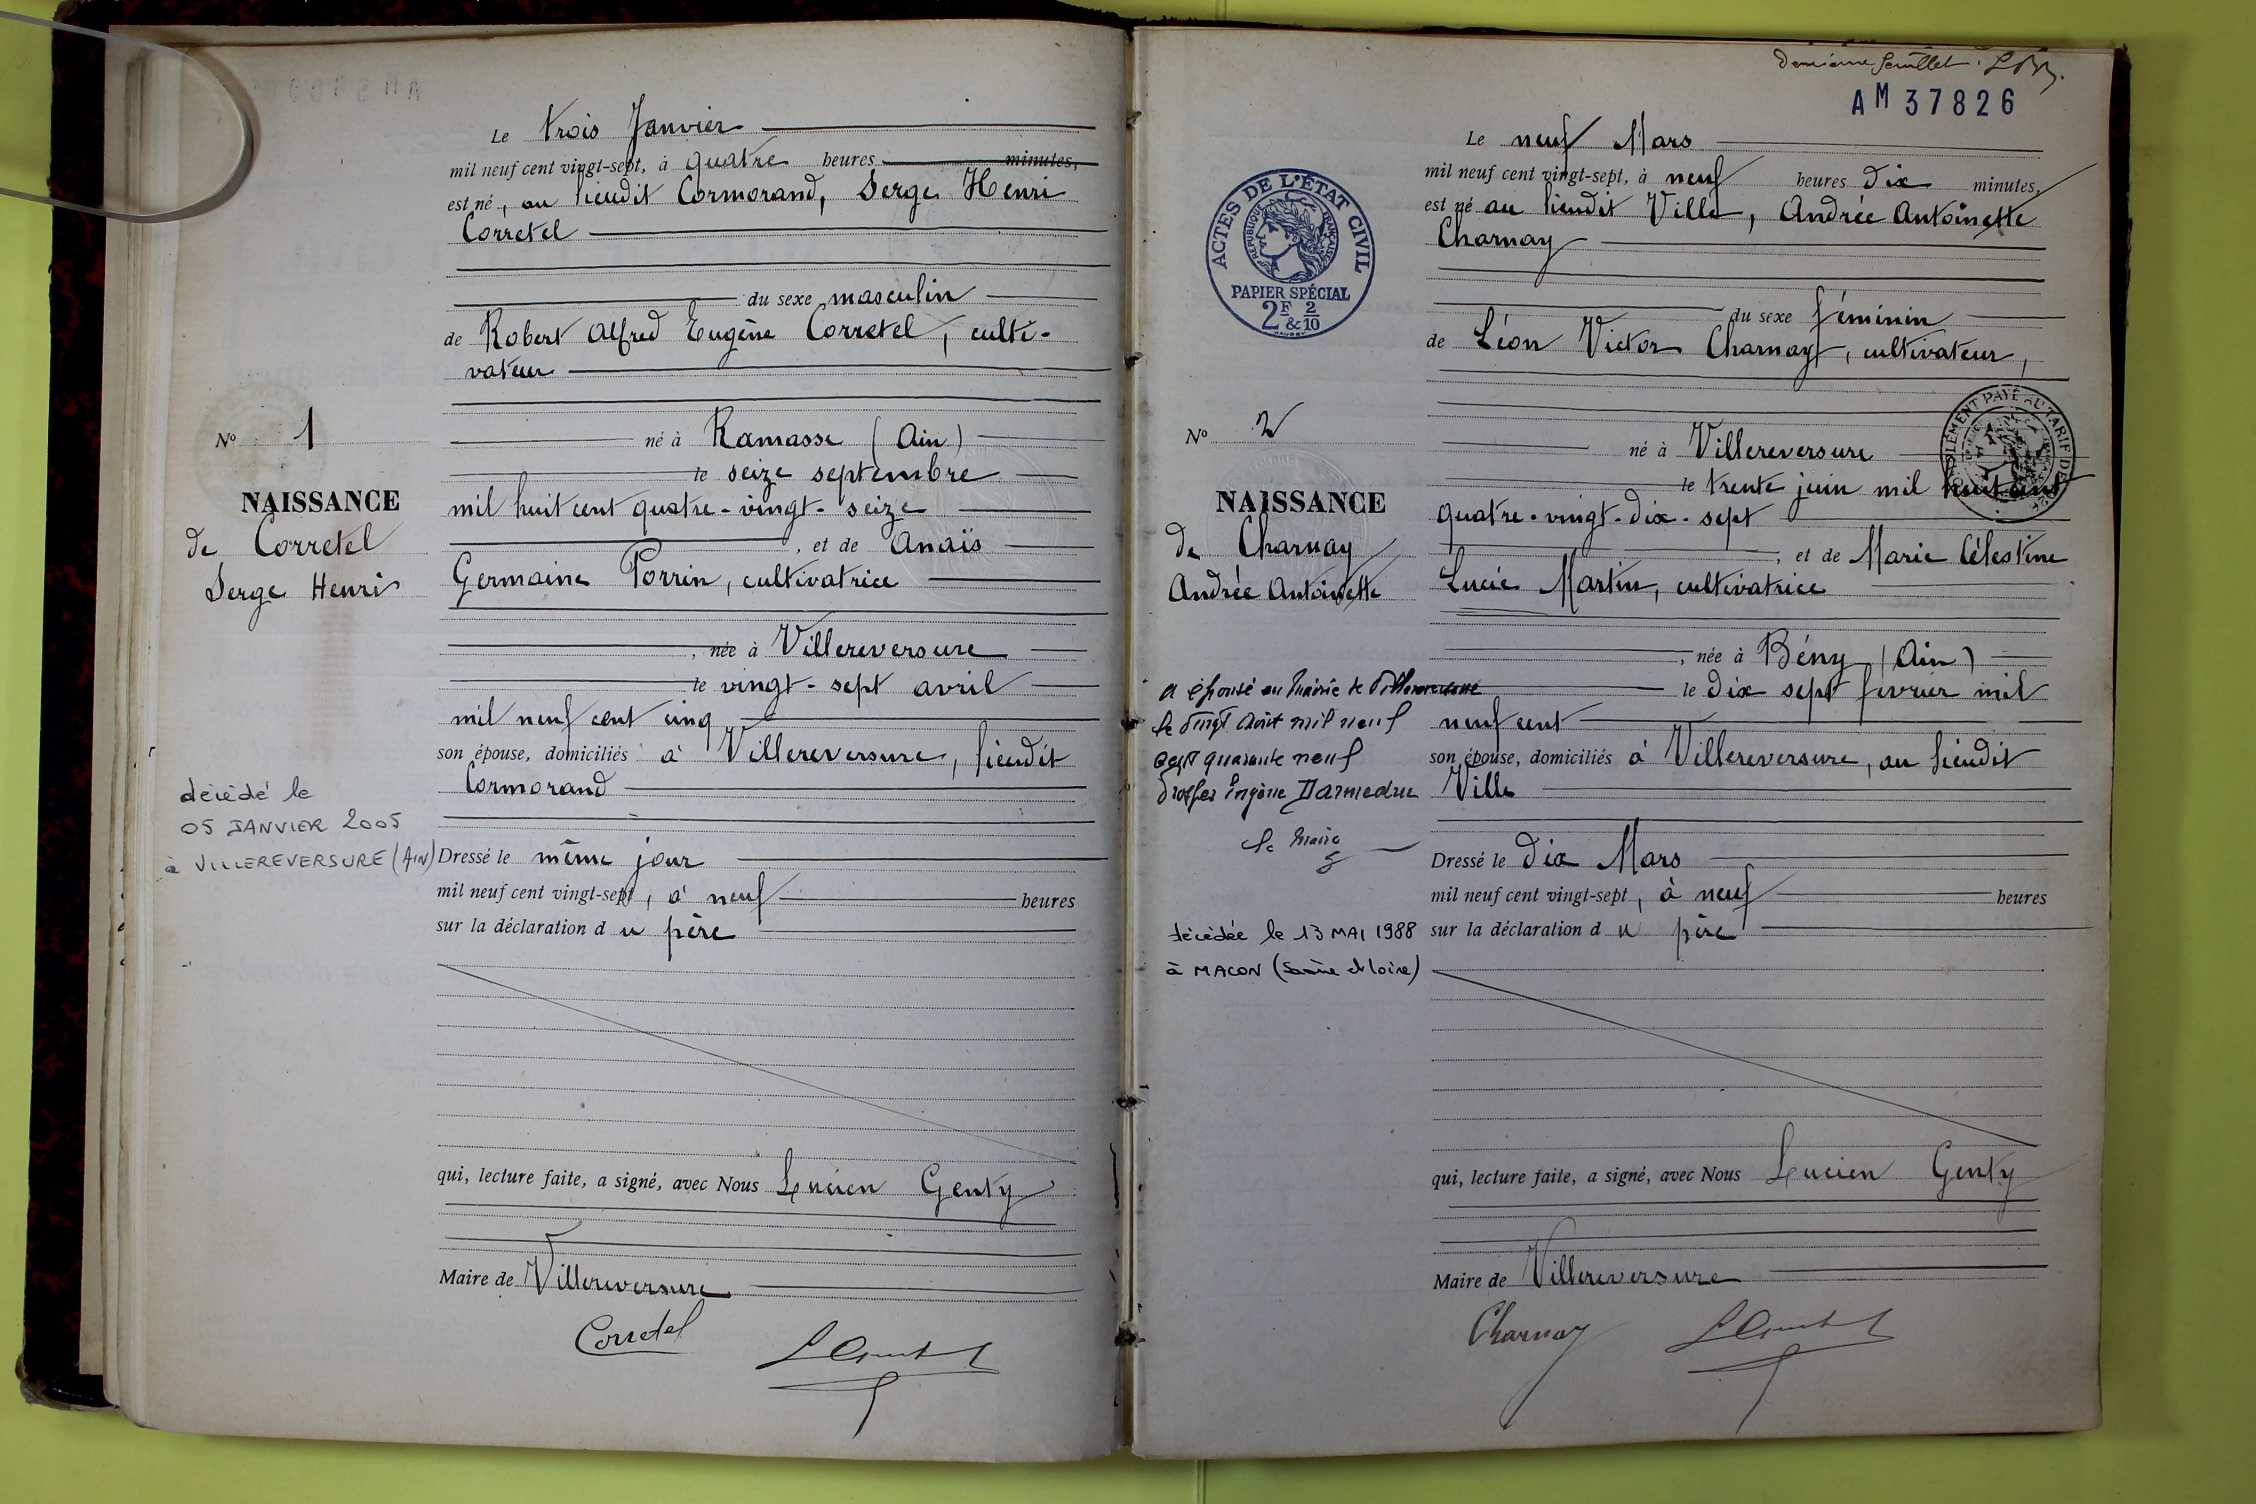 Le trois Janvier
mil neuf cent vingt-sept, à quatre heures minutes,
est né, au lieudit Cormorand, Serge Henri
Corretel
du sexe masculin
de Robert Alfred Eugène Corretel, culti-
vateur
né à Ramasse (Ain)
le seize septembre
mil huit cent quatre-vingt-seize
, et de Anaïs
Germaine Perrin, cultivatrice
, née à Villereversure
le vingt-sept avril
mil neuf cent cinq
son épouse, domiciliés à Villereversure, lieudit
Cormorand
Dressé le même jour
mil neuf cent vingt-sept, à neuf heures
sur la déclaration du père
qui, lecture faite, a signé, avec Nous Lucien Genty
Maire de Villereversure
Corretel
No 1
NAISSANCE
de Corretel
Serge Henri
décédé le
05 JANVIER 2005
à VILLEREVERSURE (AIN)
feuillet.
AM 37826
Le neuf Mars
mil neuf cent vingt-sept, à neuf heures dix minutes,
est né au lieudit Ville, Andrée Antoinette
Charnay
du sexe féminin
de Léon Victor Charnay, cultivateur,
né à Villereversure
le trente juin mil huit cent
quatre-vingt-dix-sept
, et de Marie Célestine
Lucie Martin, cultivatrice
, née à Bény (Ain)
le dix sept février mil
neuf cent
son épouse, domiciliés à Villereversure, au lieudit
Ville
Dressé le dix Mars
mil neuf cent vingt-sept, à neuf heures
sur la déclaration du père
qui, lecture faite, a signé, avec Nous Lucien Genty
Maire de Villereversure
Charnay
ACTES DE L'ÉTAT CIVIL
RÉPUBLIQUE FRANÇAISE
PAPIER SPÉCIAL
2F & 2/10
No 2
NAISSANCE
de Charnay
Andrée Antoinette
a épousé en Mairie de Villereversure
le vingt août mil neuf
cent quarante neuf
Eugène
le Maire
décédée le 13 MAI 1988
à MACON (Saône et Loire)
PAYÉ AU TARIF DE